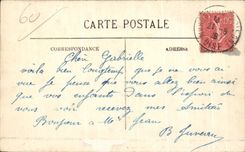 60
CARTE POSTALE
CORRESPONDANCE
ADRESSE
Chère Gabrielle
voilà bien longtemps que je ne vous ai
vue je pense que vous allez bien ainsi
que vos enfants dans l'espoir de
vous voir recevez mes amitiés
Bonjour à Mr Jean
B